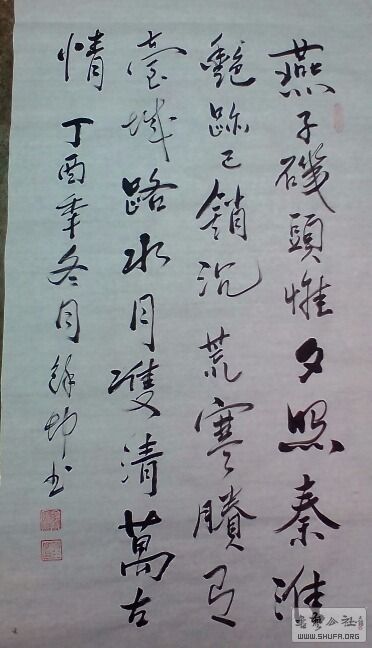 燕子磯頭惟夕照秦淮
艷跡已銷沉荒寒賸有
臺城路水月雙清萬古
情 丁酉年冬月 书
書藝公社
WWW.SHUFA.ORG